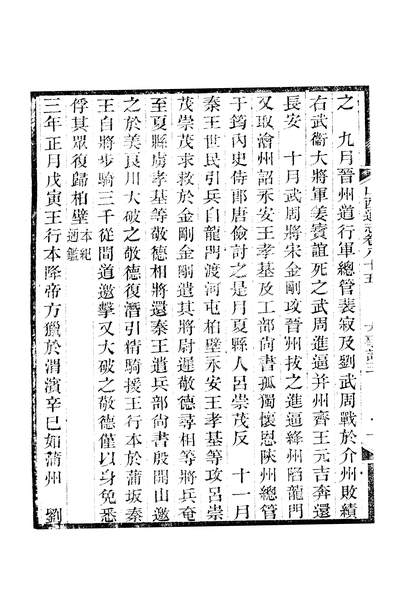 之　九月晉州道行軍總管裴寂及劉武周戰於介州敗績
右武衞大將軍姜寶誼死之武周進逼并州齊王元吉奔還
長安　十月武周將宋金剛攻晉州拔之進逼絳州陷龍門
又取澮州詔永安王孝基及工部尚書孤獨懷恩陝州總管
于筠內史侍郎唐儉討之是月夏縣人呂崇茂反　十一月
秦王世民引兵自龍門渡河屯柏壁永安王孝基等攻呂崇
茂崇茂求救於金剛金剛遣其將尉遲敬德尋相等將兵奄
至夏縣虜孝基等敬德相將還秦王遣兵部尚書殷開山邀
之於美良川大破之敬德復潛引精騎援王行本於蒲坂秦
王自將步騎三千從間道邀擊又大破之敬德僅以身免悉
俘其眾復歸柏壁本紀通鑑
三年正月戊寅王行本降帝方獵於渭濱辛巳如蒲州　劉